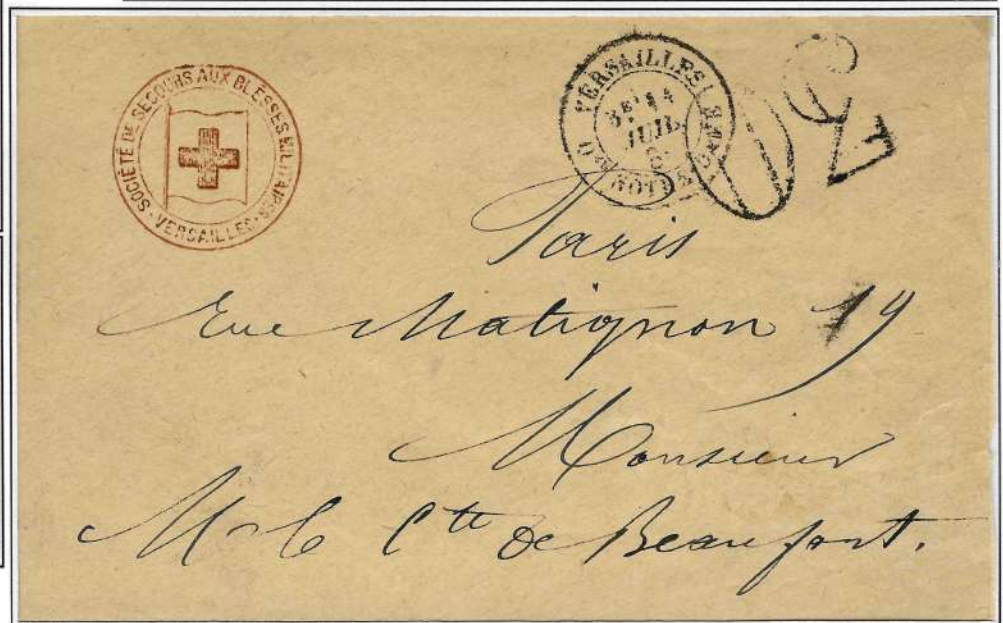 SOCIÉTÉ DE SECOURS AUX BLESSÉS MILITAIRES
· VERSAILLES ·
VERSAILLES
JUIL
Paris
Rue Matignon 19
Monsieur
Mr le Cte de Beaufort.